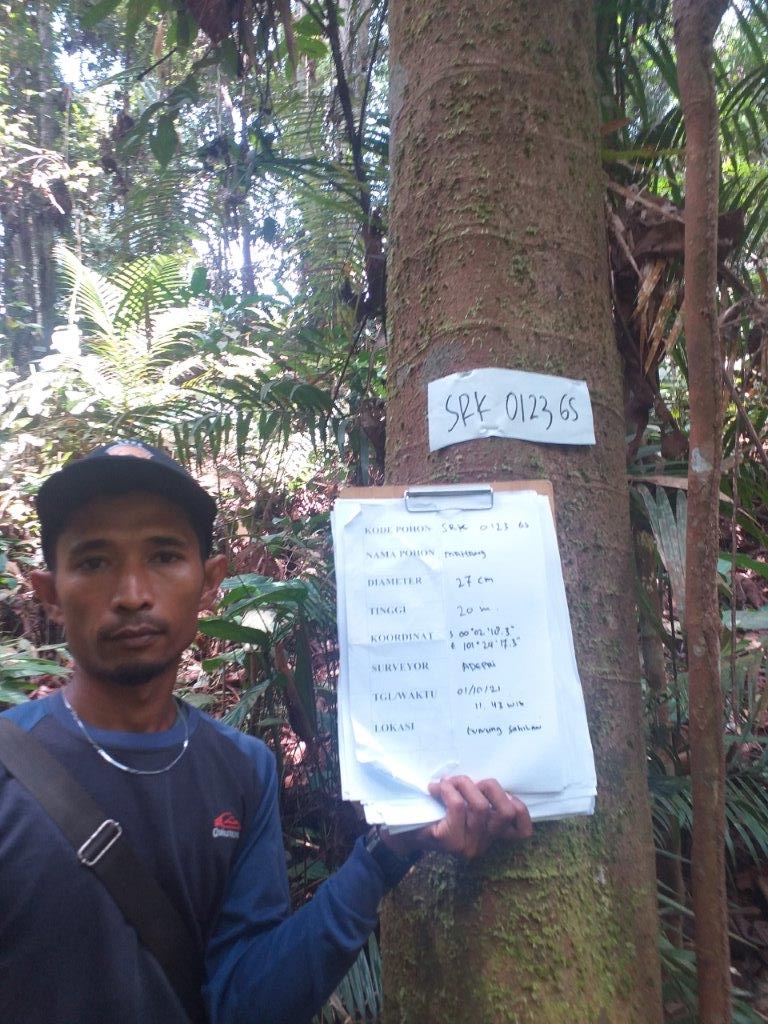 SRK 0123 65
KODE POHON SRK 0123 65
NAMA POHON
DIAMETER 27 cm
TINGGI 20 m.
KOORDINAT S 00°02'18.3"
E 101°24'17.3"
SURVEYOR
TGL/WAKTU 01/10/21
11. 43 WIB
LOKASI Gunung Sahilan